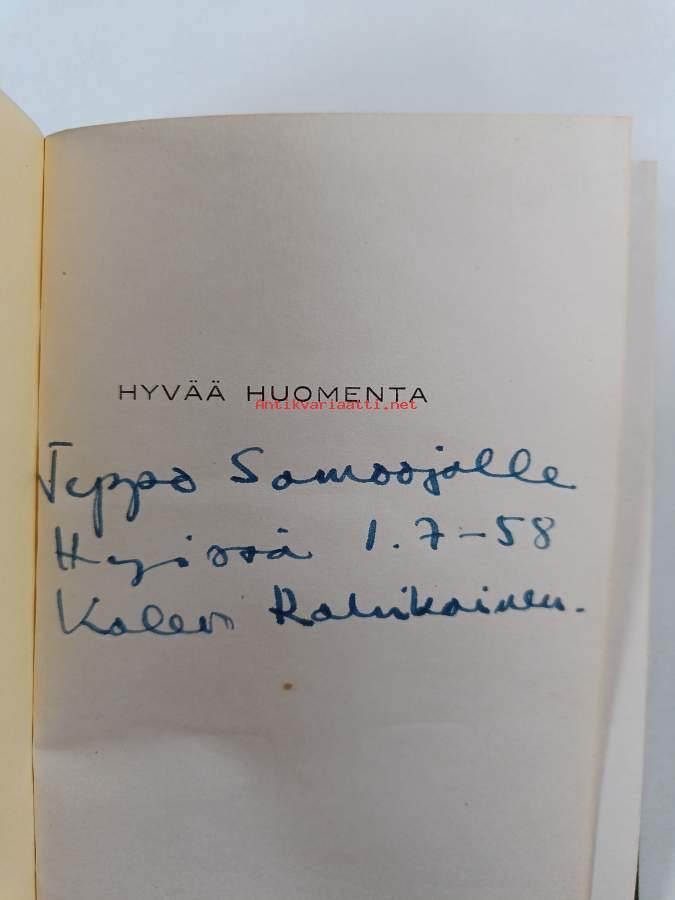 HYVÄÄ HUOMENTA
Antikvariaatti.net
Teppo Samoojalle
H:gissä 1.7-58
Kalevi Rahikainen.